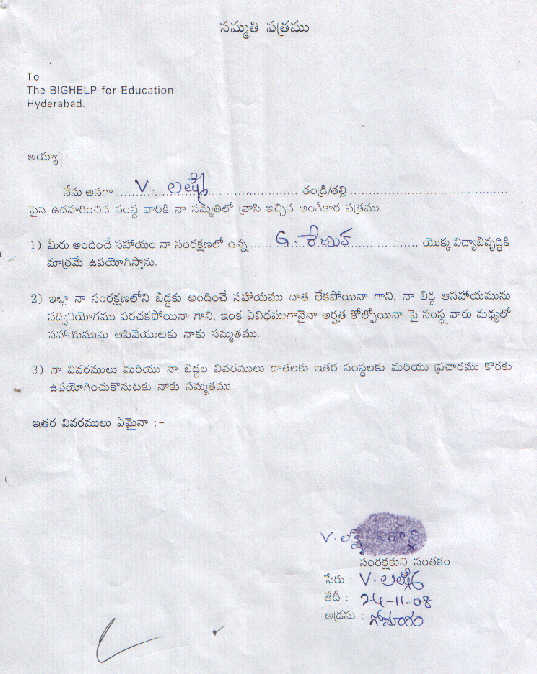 సమ్మతి పత్రము
To
The BIGHELP for Education
Hyderabad.
అయ్యా
నేను అనగా V. లక్ష్మి తండ్రి/తల్లి
పైన ఉదహరించిన సంస్థ వారికి నా సమ్మతితో వ్రాసి ఇచ్చిన అంగీకార పత్రము.
1) మీరు అందించే సహాయం నా సంరక్షణలో ఉన్న G. యొక్క విద్యాభివృద్ధికి
మాత్రమే ఉపయోగిస్తాను.
2) ఇట్లా నా సంరక్షణలోని బిడ్డకు అందించే సహాయము బాత లేకపోయినా గాని, నా బిడ్డ ఆసహాయమును
సద్వినియోగము పరచకపోయినా గాని, ఇంక ఏవిధముగానైనా అర్హత కోల్పోయినా పై సంస్థ వారు మధ్యలో
సహాయమును ఆపివేయుటకు నాకు సమ్మతము.
3) నా వివరములు మరియు నా బిడ్డల వివరములు దాతలకు ఇతర సంస్థలకు మరియు ప్రచారము కొరకు
ఉపయోగించుకొనుటకు నాకు సమ్మతము
ఇతర వివరములు ఏమైనా :-
V.
సంరక్షకుని సంతకం
పేరు : V. లక్ష్మి
తేదీ : 24-11-08
అడ్రసు :